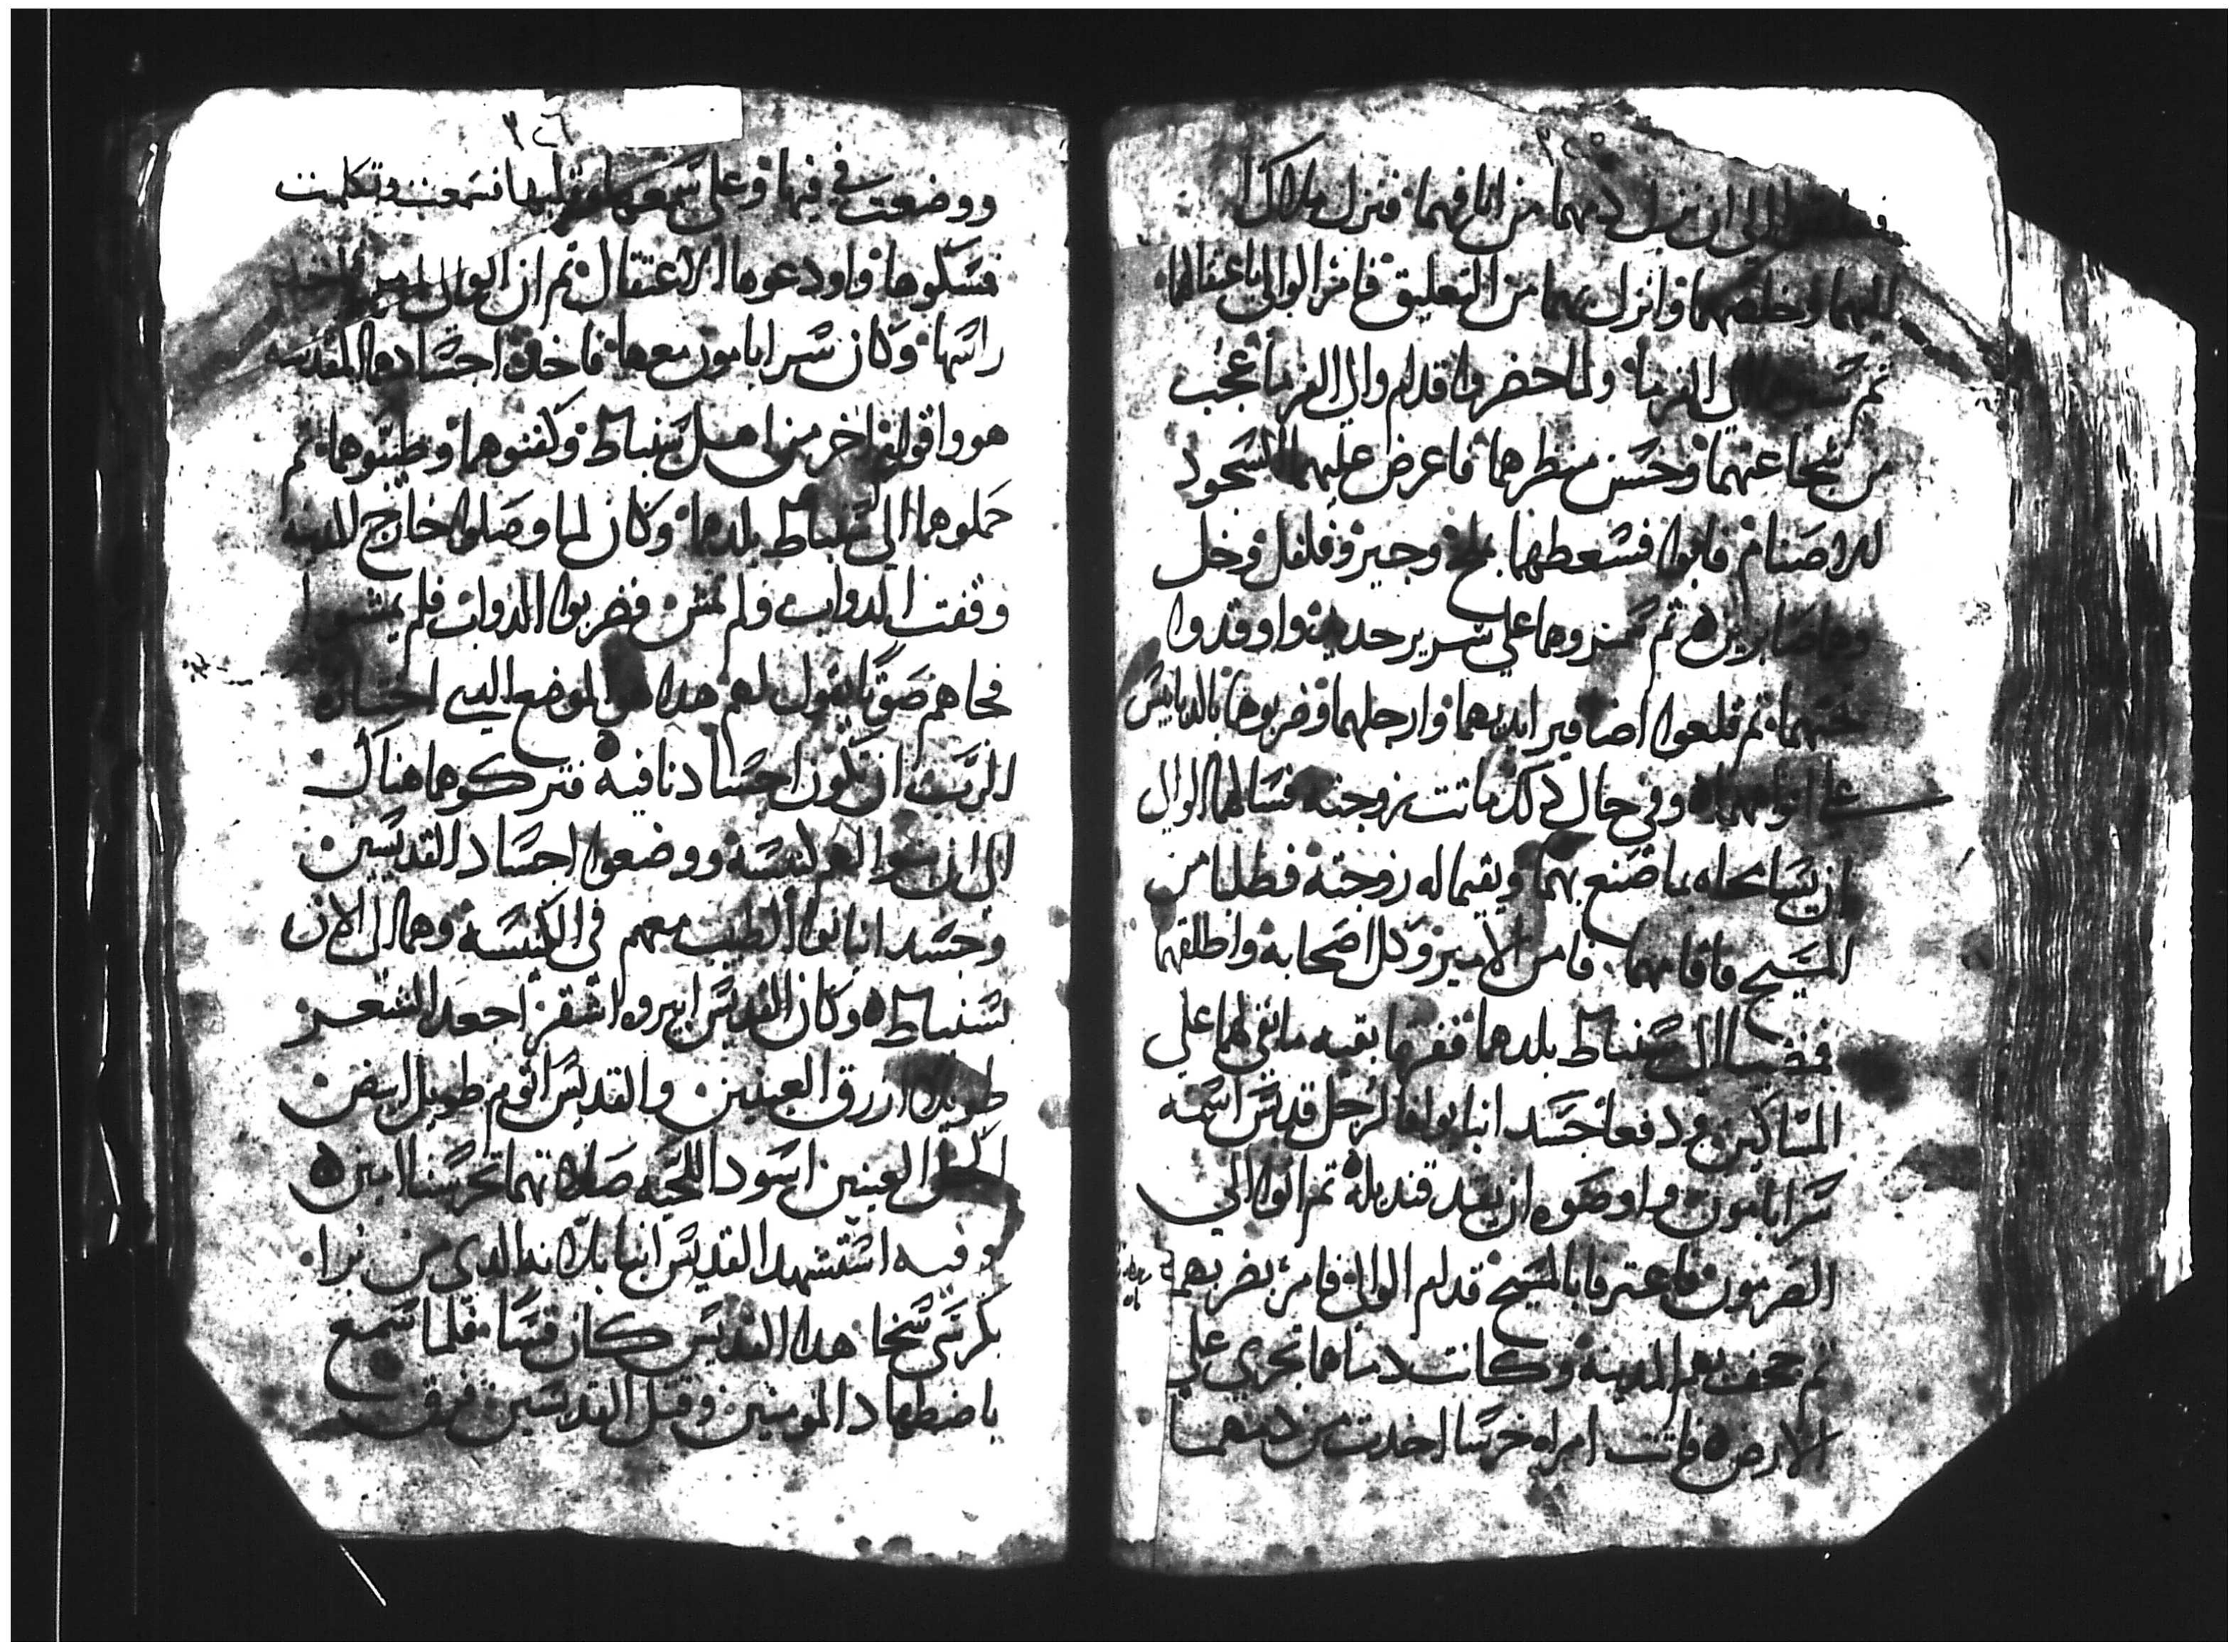 ٢٤٥
الى ان نزل دمهما من انافهما فنزل ملاك
اليهما وخلصهما وانزل بهما من التعليق فامر الوالي باعتقالهما
ثم الى الفرما ولما حضروا قدام والي الفرما عجب
من شجاعتهما وحسن منظرهما فاعرض عليهما السجود
للاصنام فابوا فسعطهما بملح وجير وفلفل وخل
وهما صابرين ثم سمروهما على سرير حديد واوقدوا
تحتهما ثم قلعوا اضافير ايديهما وارجلهما وضربوهما بالدبابيس
على افواههما وفي حال ذلك ماتت زوجته فسالهما الوالي
ان يسامحاه بما صنع بهما ويقيما له زوجته فطلبا من
المسيح فاقامها فامن الامير وكل اصحابه واطلقهما
فمضيا الى سنباط بلدهما ففرقا بقيه ما بقي لهما على
المساكين ودفعا جسد انبا نوافا لرجل قديس اسمه
سرابامون واوصوه ان يقيد قنديله ثم اتوا الي
القرمون فاعترفا بالمسيح قدام الوالي فامر بضربهما
ثم بهم المدينه وكانت دماهما تجري علي
الارض فاتت امراه خرسا اخدت من دمهما
٢٤٦
ووضعت في فيها وعلى سمعها فسمعت وتكلمت
فمسكوها واودعوها الاعتقال ثم ان الوالي امر باخذ
راسها وكان سرابامون معها فاخذ اجسادهما المقدسه
هو واقوام اخر من اهل سنباط وكفنوهما وطيبوهما ثم
حملوهما الى سنباط بلدهما وكان لما وصلوا خارج المدينه
وقفت الدواب ولم تمش فضربوا الدواب فلم يمشوا
فجاهم صوتا يقول لهم هدا هو الموضع الدي اختاره
الرب ان تكون اجسادنا فيه فتركوهما هناك
الى ان بنوا لهم كنيسه ووضعوا اجساد القديسين
وجسد انبا نوا الطبيب معهم في الكنيسه وهما الى الان
بسنباط وكان القديس ابيروه اشقر اجعد الشعر
طويلا ازرق العينين والقديس اتوم طويل ابيض
اكحل العينين اسود اللحيه صلاتهما تحرسنا امين
وفيه استشهد القديس انبا بلانه الدي من برا
بكرسي سخا هدا القديس كان قسا فلما سمع
باضطهاد المومنين وقتل القديسين فرق